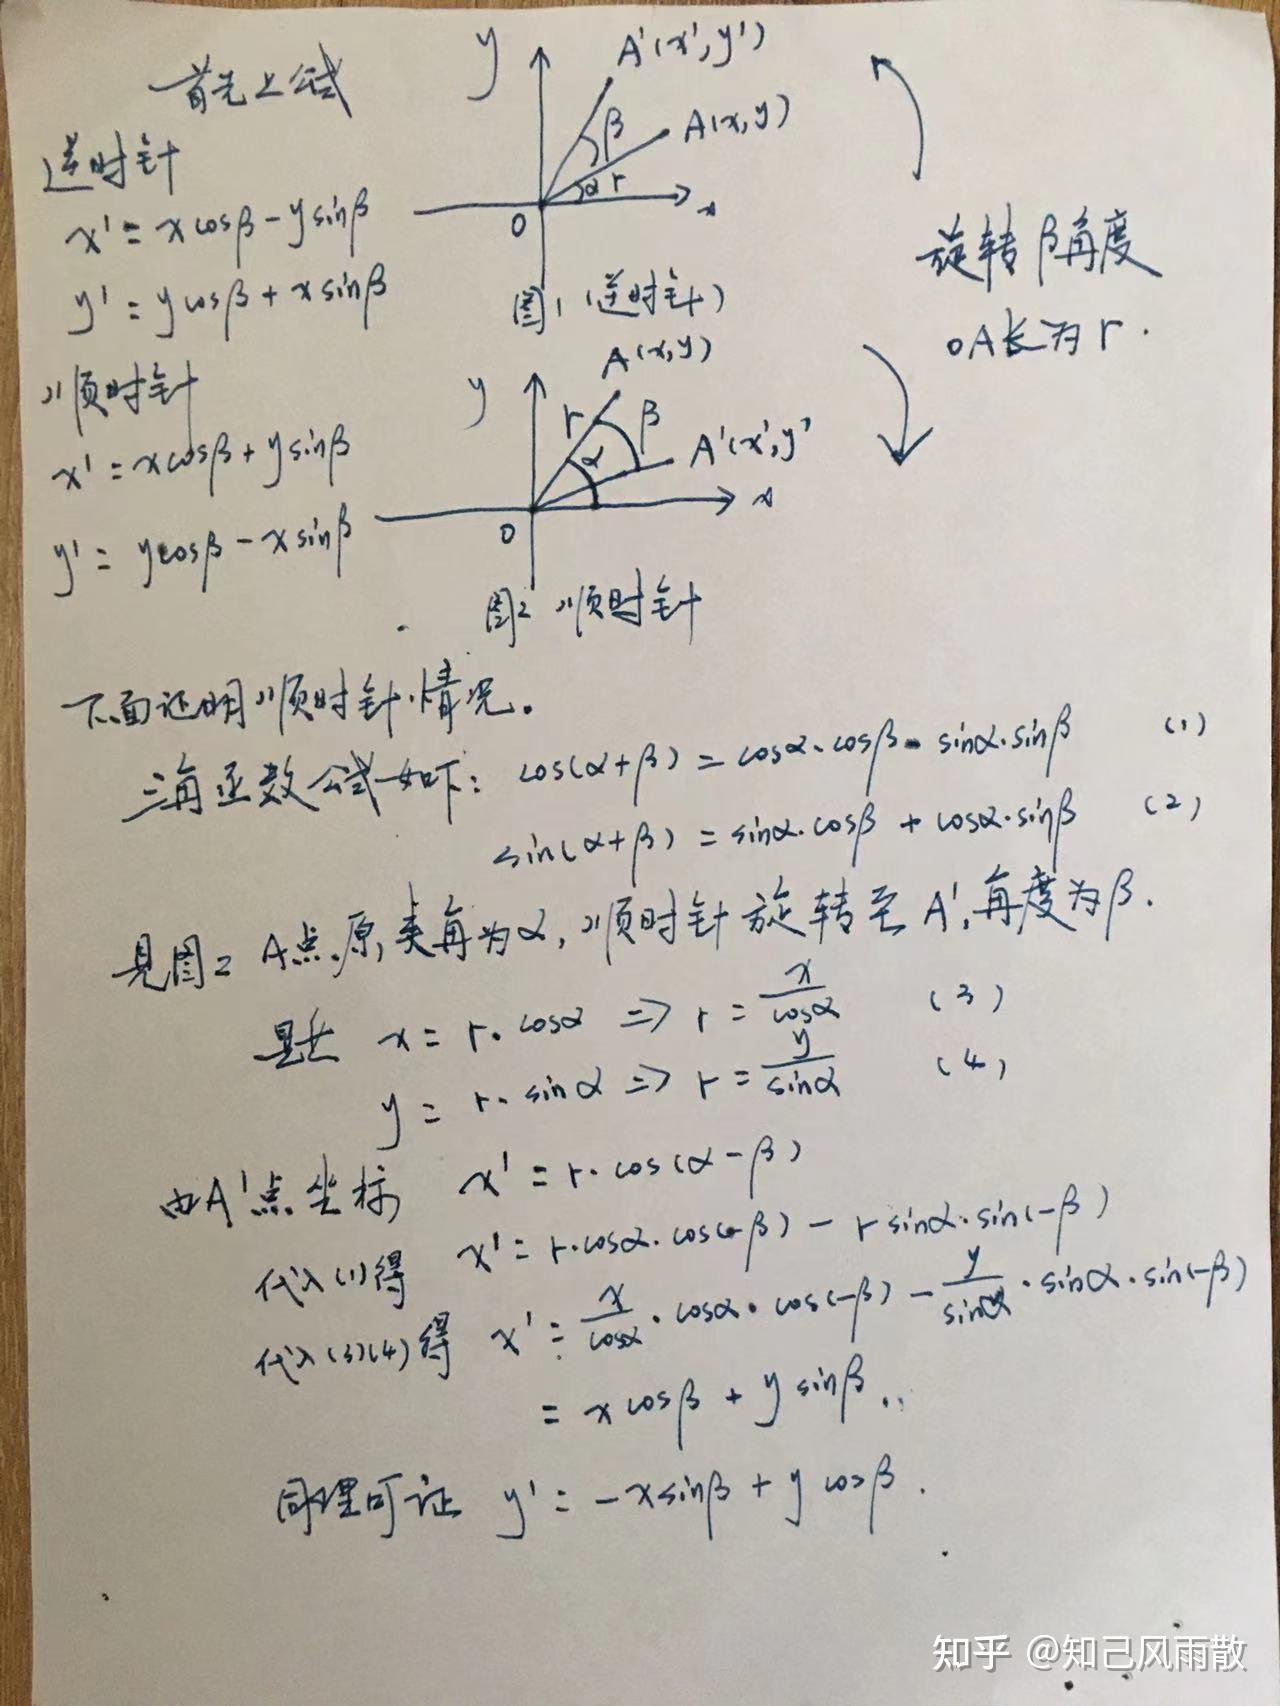 首先上公式
y
A'(x',y')
β
A(x,y)
α r
x
0
逆时针
x' = x cosβ - y sinβ
y' = y cosβ + x sinβ
图1 (逆时针)
旋转β角度
OA长为r.
顺时针
x' = x cosβ + y sinβ
y' = y cosβ - x sinβ
A(x,y)
y
r
β
α
A'(x',y'
x
0
图2 顺时针
下面证明顺时针情况。
三角函数公式如下: cos(α+β) = cosα·cosβ - sinα·sinβ (1)
sin(α+β) = sinα·cosβ + cosα·sinβ (2)
见图2 A点原夹角为α, 顺时针旋转至A',角度为β.
x = r·cosα => r = x/cosα (3)
y = r·sinα => r = y/sinα (4)
由A'点坐标 x' = r·cos(α-β)
代入(1)得 x' = r·cosα·cos(-β) - r sinα·sin(-β)
代入(3)(4)得 x' = x/cosα·cosα·cos(-β) - y/sinα·sinα·sin(-β)
= x cosβ + y sinβ..
同理可证 y' = -x sinβ + y cosβ.
知乎 @知己风雨散